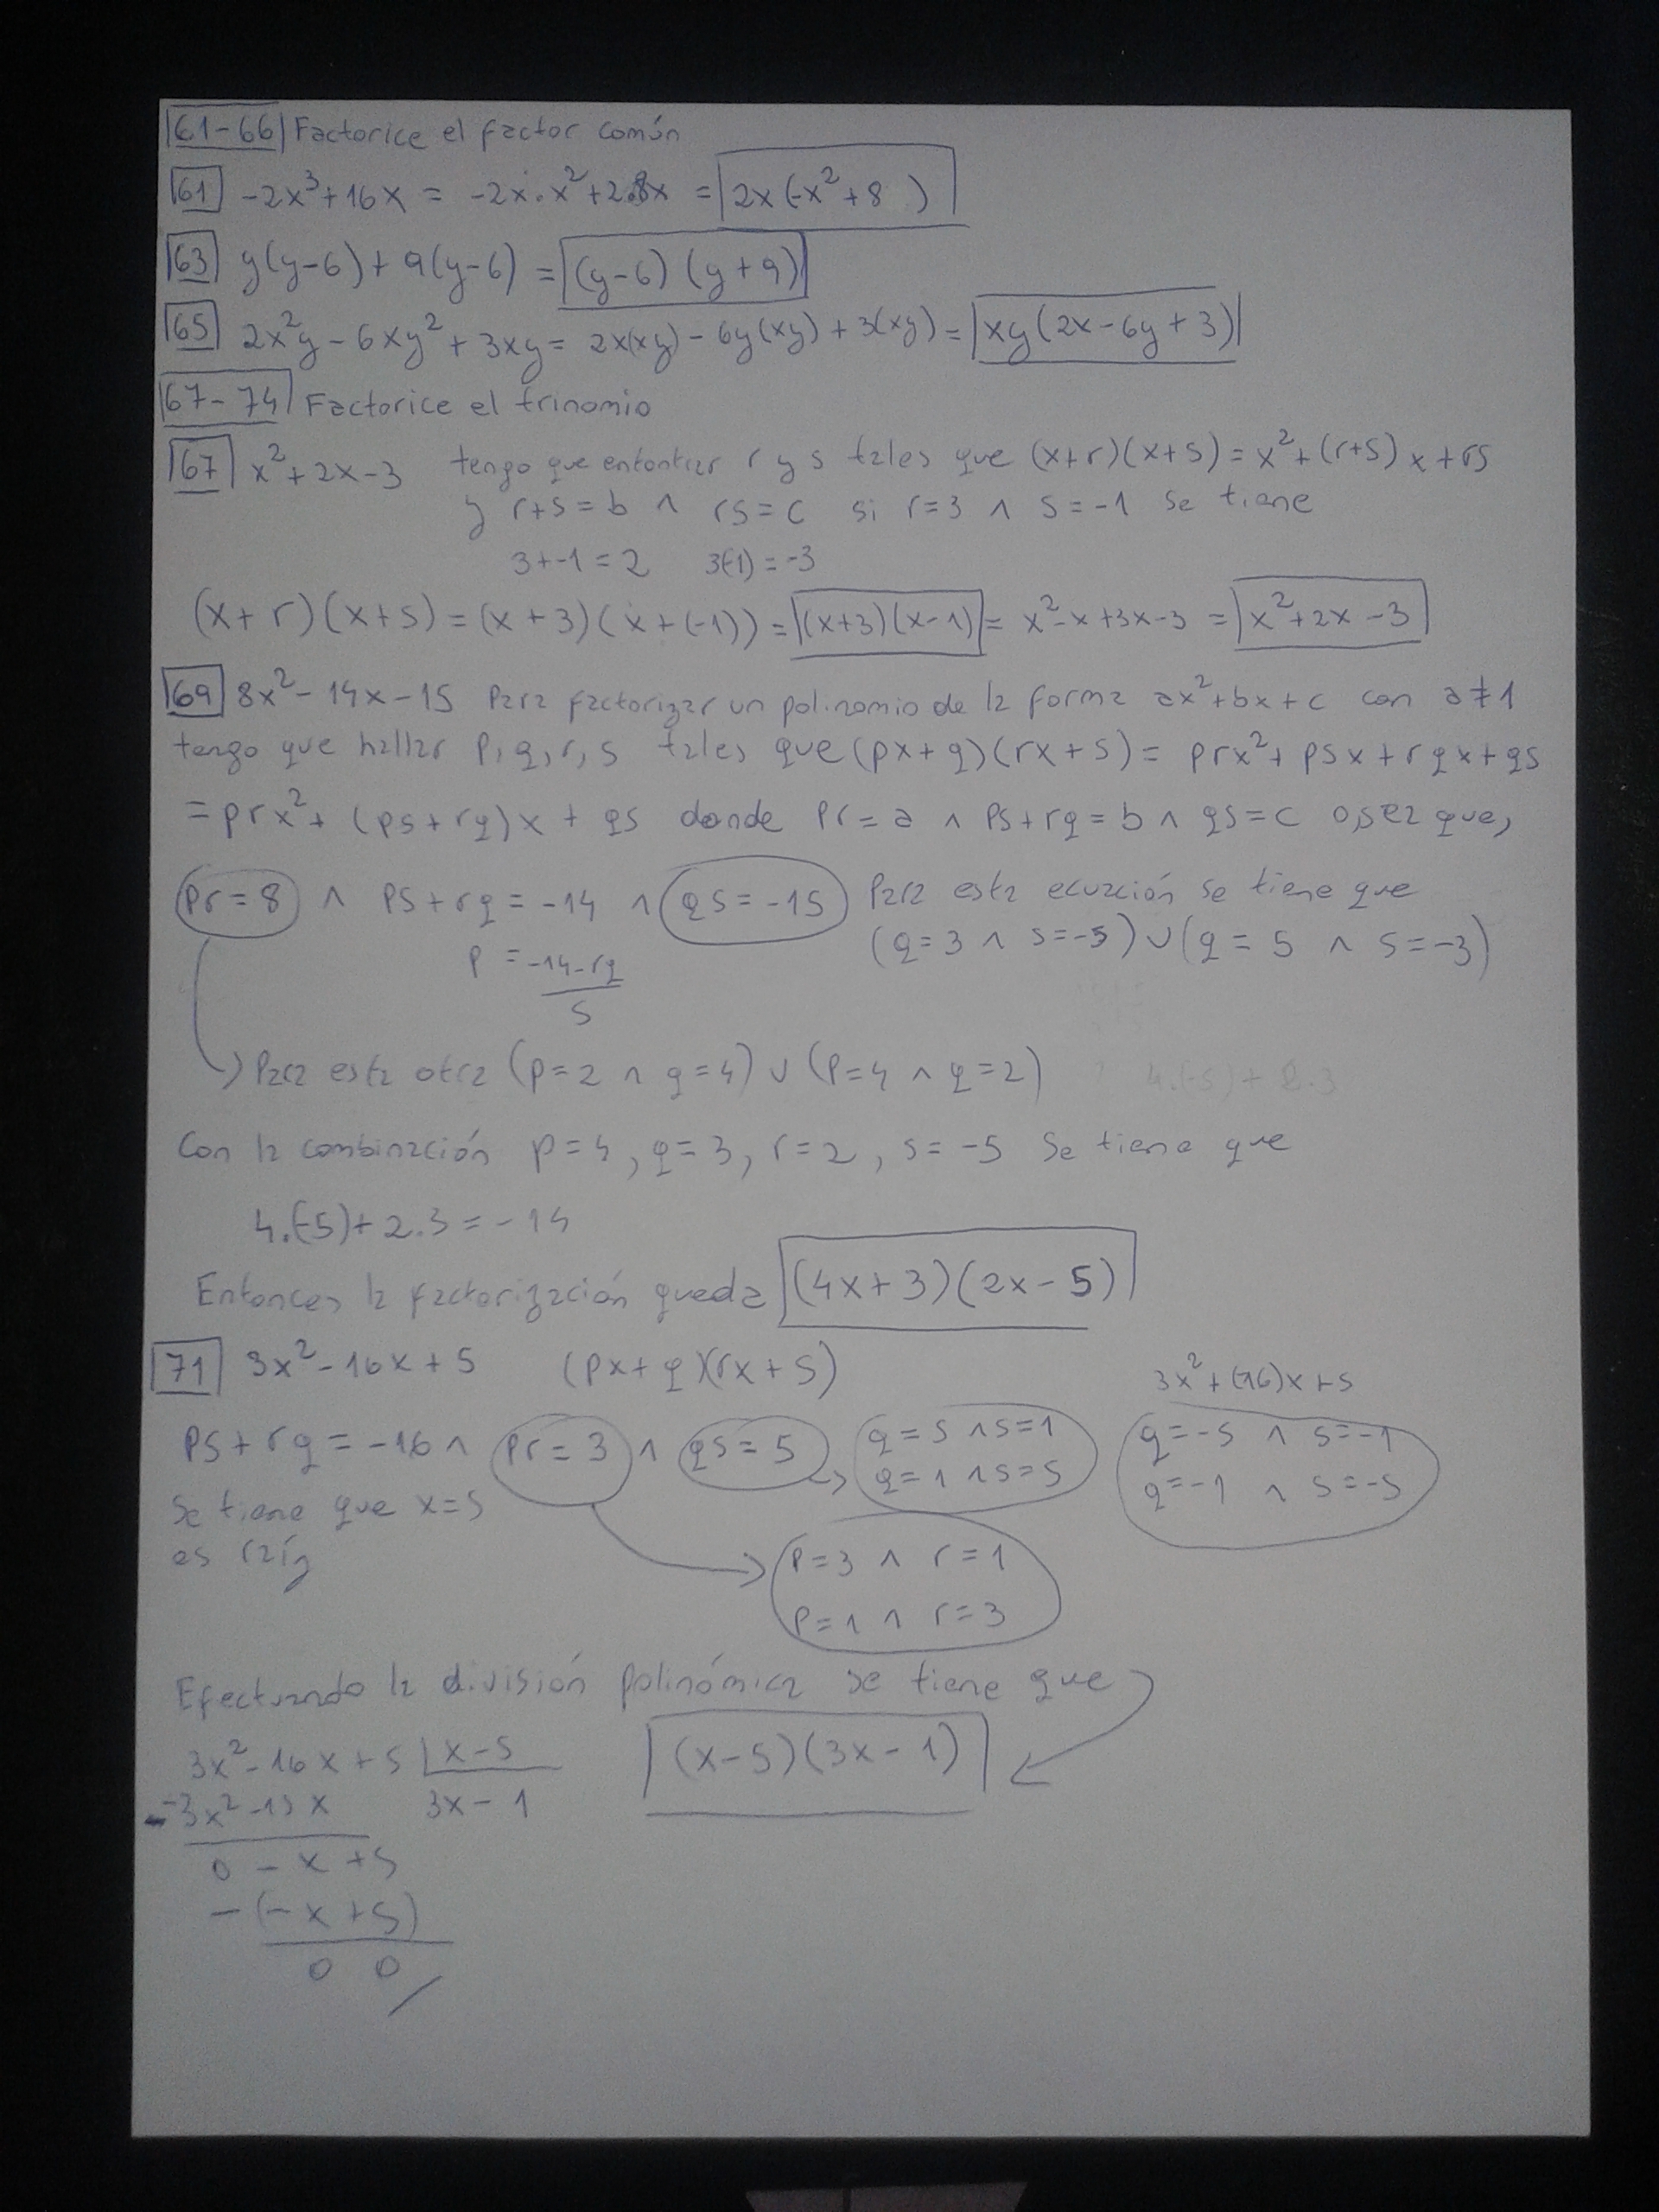 61-66 Factorice el factor común
61 -2x³+16x = -2x·x²+2·8x = 2x(-x²+8)
63 y(y-6)+9(y-6) = (y-6)(y+9)
65 2x²y-6xy²+3xy= 2x(xy)-6y(xy)+3(xy)= xy(2x-6y+3)
67-74 Factorice el trinomio
67 x²+2x-3 tengo que entontrar r y s tales que (x+r)(x+s)=x²+(r+s)x+rs
y r+s=b ∧ rs=c si r=3 ∧ s=-1 se tiene
3+-1=2 3(-1)=-3
(x+r)(x+s)=(x+3)(x+(-1))=(x+3)(x-1)= x²-x+3x-3 = x²+2x-3
69 8x²-14x-15 Para factorizar un polinomio de la forma ax²+bx+c con a≠1
tengo que hallar p,q,r,s tales que (px+q)(rx+s)= prx²+psx+rqx+qs
=prx²+(ps+rq)x+qs donde pr=a ∧ ps+rq=b ∧ qs=c o sea que,
pr=8 ∧ ps+rq=-14 ∧ qs=-15 Para esta ecuación se tiene que
(q=3 ∧ s=-5)∪(q=5 ∧ s=-3)
p = -14-rq
s
Para esta otra (p=2 ∧ q=4)∪(p=4 ∧ q=2) 4.(-5)+2.3
Con la combinación p=4, q=3, r=2, s=-5 se tiene que
4.(-5)+2.3=-14
Entonces la factorización queda (4x+3)(2x-5)
71 3x²-16x+5 (px+q)(rx+s) 3x²+(-16)x+5
ps+rq=-16 ∧ pr=3 ∧ qs=5 q=5 ∧ s=1 q=-5 ∧ s=-1
q=1 ∧ s=5 q=-1 ∧ s=-5
se tiene que x=5
es raíz p=3 ∧ r=1
p=1 ∧ r=3
Efectuando la división polinómica se tiene que
3x²-16x+5 x-5 (x-5)(3x-1)
-3x²-15x 3x-1
0-x+5
-(-x+5)
0 0